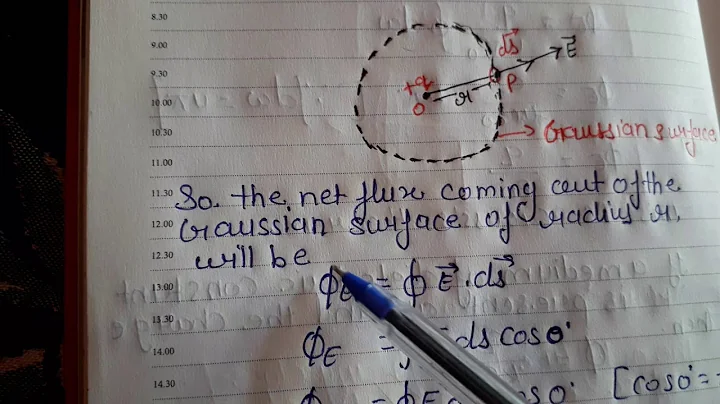 8.30
9.00
9.30
10.00
10.30
11.00
11.30
12.00
12.30
13.00
13.30
14.00
14.30
ds
E⃗
+q
O
r
P
Gaussian surface
So the net flux coming out of the
Gaussian surface of radius r,
will be
ϕE = ∮ E⃗ . ds⃗
ϕE = ds cos0°
[cos0° =